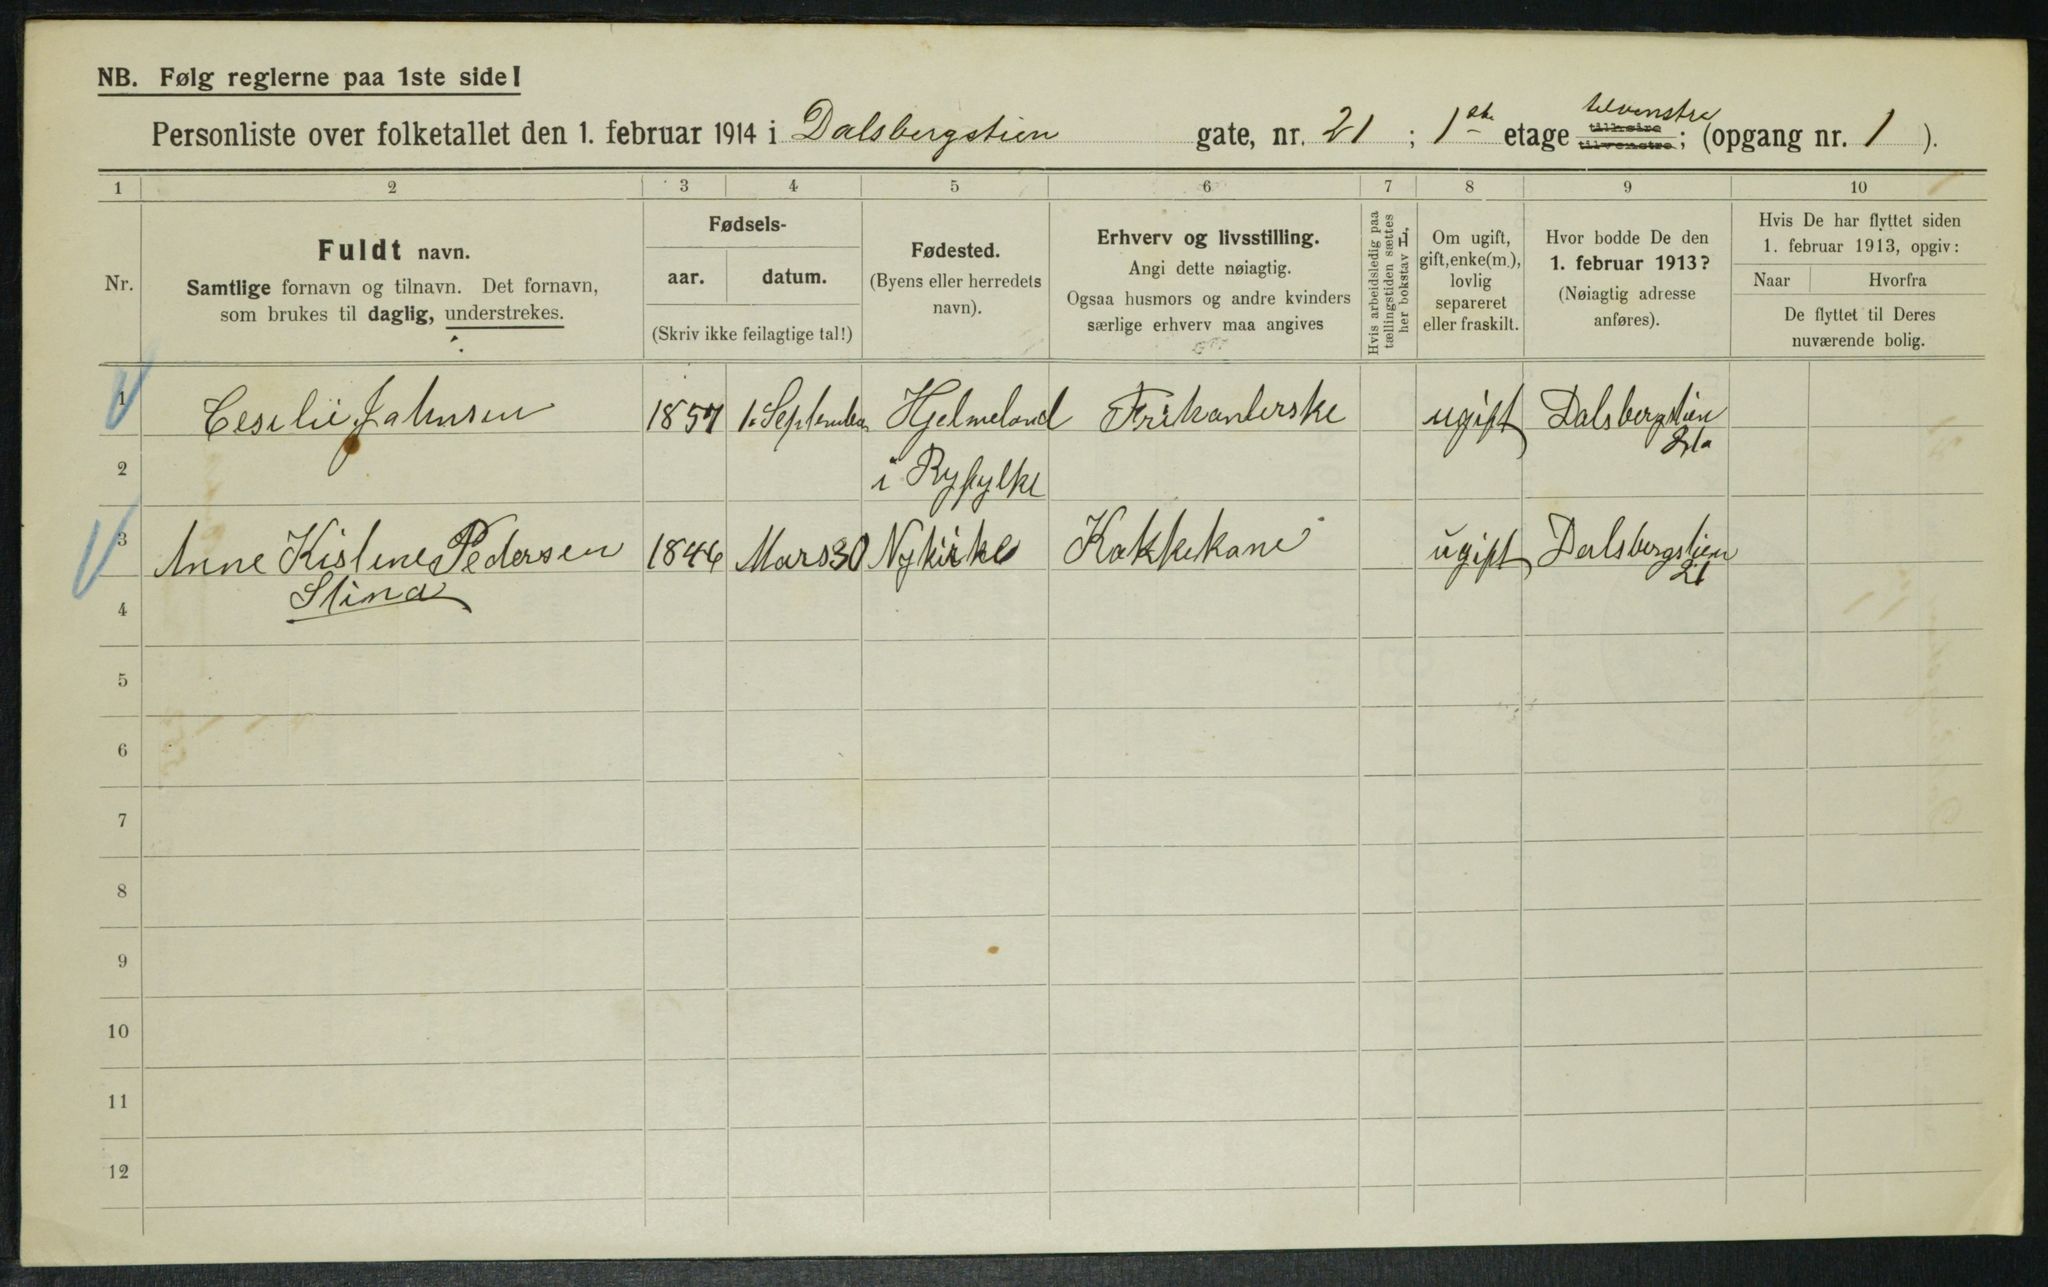 NB. Følg reglerne paa 1ste side!
Personliste over folketallet den 1. februar 1914 i Dalsbergstien gate, nr. 21 ; 1ste etage tilhøire tilvenstre tilvenstre; (opgang nr. 1 ).
1 2 3 4 5 6 7 8 9 10
Nr.
Fuldt navn.
Samtlige fornavn og tilnavn. Det fornavn,
som brukes til daglig, understrekes.
Fødsels-
aar. datum.
(Skriv ikke feilagtige tal!)
Fødested.
(Byens eller herredets
navn).
Erhverv og livsstilling.
Angi dette nøiagtig.
Ogsaa husmors og andre kvinders
særlige erhverv maa angives
Hvis arbeidsledig paa
tællingstiden sættes
her bokstav L.
Om ugift,
gift, enke(m.),
lovlig
separeret
eller fraskilt.
Hvor bodde De den
1. februar 1913?
(Nøiagtig adresse
anføres).
Hvis De har flyttet siden
1. februar 1913, opgiv:
Naar Hvorfra
De flyttet til Deres
nuværende bolig.
1 Cesilie Jahnsen 1857 1. September Hjelmeland Frikanterske ugift Dalsbergstien
21a
2 i Ryfylke
3 Anne Kistine Pedersen 1846 Mars 30 Nykirke Kokkekone ugift Dalsbergstien
21
4 Stina
5
6
7
8
9
10
11
12